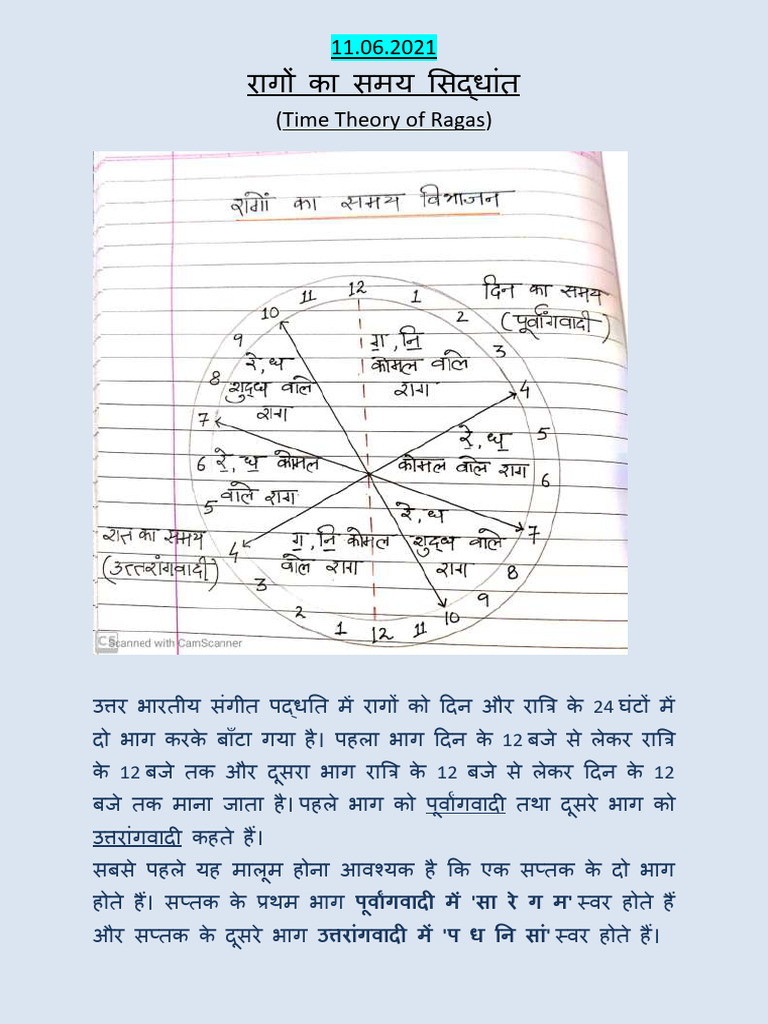 11.06.2021
रागों का समय सिद्धांत
(Time Theory of Ragas)
रागों का समय विभाजन
दिन का समय
(पूर्वांगवादी)
12
11
1
10
2
9
3
8
4
7
5
6
6
5
7
4
8
3
9
2
10
1
12
11
ग॒, नि॒
कोमल वाले
राग
रे, ध
शुद्ध वाले
राग
रे॒, ध॒
कोमल वाले राग
रे॒, ध॒ कोमल
वाले राग
रे, ध
शुद्ध वाले
राग
ग॒, नि॒ कोमल
वाले राग
रात का समय
(उत्तरांगवादी)
CS Scanned with CamScanner
उत्तर भारतीय संगीत पद्धति में रागों को दिन और रात्रि के 24 घंटों में
दो भाग करके बाँटा गया है। पहला भाग दिन के 12 बजे से लेकर रात्रि
के 12 बजे तक और दूसरा भाग रात्रि के 12 बजे से लेकर दिन के 12
बजे तक माना जाता है। पहले भाग को पूर्वांगवादी तथा दूसरे भाग को
उत्तरांगवादी कहते हैं।
सबसे पहले यह मालूम होना आवश्यक है कि एक सप्तक के दो भाग
होते हैं। सप्तक के प्रथम भाग पूर्वांगवादी में 'सा रे ग म' स्वर होते हैं
और सप्तक के दूसरे भाग उत्तरांगवादी में 'प ध नि सां' स्वर होते हैं।